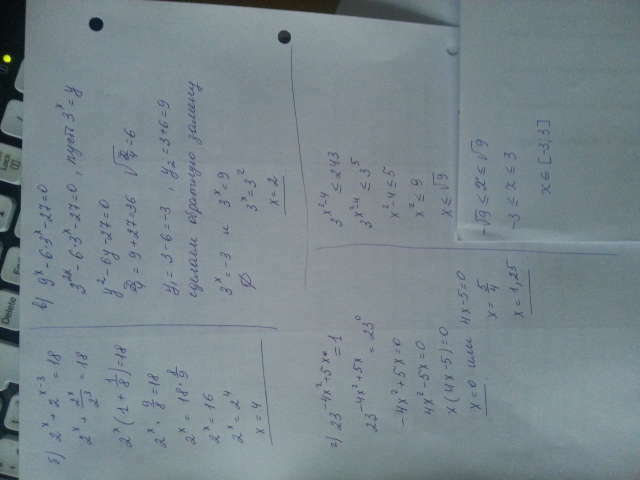 б) 2^x + 2^(x-3) = 18
2^x + 2^x/2^3 = 18
2^x (1 + 1/8) = 18
2^x · 9/8 = 18
2^x = 18 · 8/9
2^x = 16
2^x = 2^4
x = 4
в) 9^x - 6·3^x - 27 = 0
3^2x - 6·3^x - 27 = 0, пусть 3^x = y
y^2 - 6y - 27 = 0
D/4 = 9 + 27 = 36 √D/4 = 6
y1 = 3 - 6 = -3, y2 = 3 + 6 = 9
сделаем обратную замену
3^x = -3 и 3^x = 9
∅ 3^x = 3^2
x = 2
г) 23^(-4x^2+5x) = 1
23^(-4x^2+5x) = 23^0
-4x^2 + 5x = 0
4x^2 - 5x = 0
x(4x - 5) = 0
x = 0 или 4x - 5 = 0
x = 5/4
x = 1,25
3^(x^2-4) ≤ 243
3^(x^2-4) ≤ 3^5
x^2 - 4 ≤ 5
x^2 ≤ 9
x ≤ √9
-√9 ≤ x ≤ √9
-3 ≤ x ≤ 3
x ∈ [-3; 3]
Delete